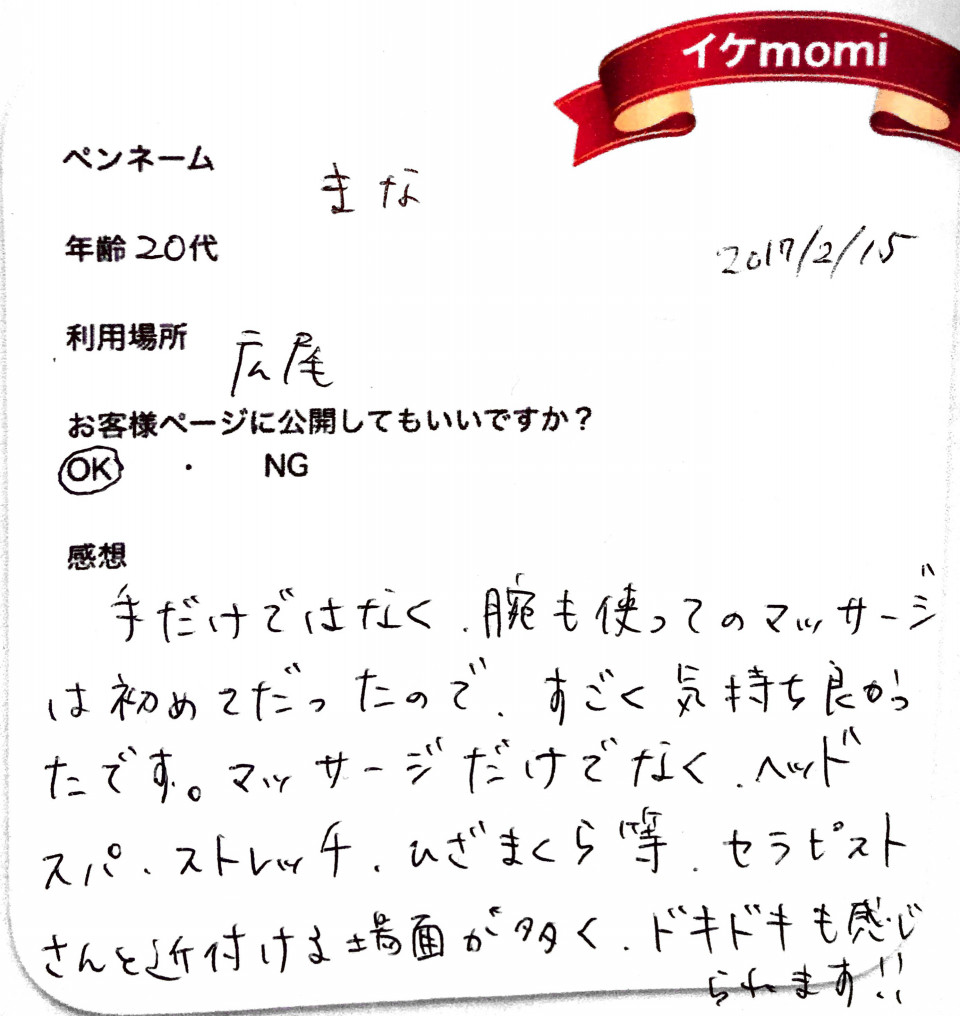 イケmomi
ペンネーム まな
年齢 20代
2017/2/15
利用場所 広尾
お客様ページに公開してもいいですか？
OK ・ NG
感想
手だけではなく、腕も使ってのマッサージ
は初めてだったので、すごく気持ち良かっ
たです。マッサージだけでなく、ヘッド
スパ、ストレッチ、ひざまくら等、セラピスト
さんと近付ける場面が多く、ドキドキも感じ
られます!!